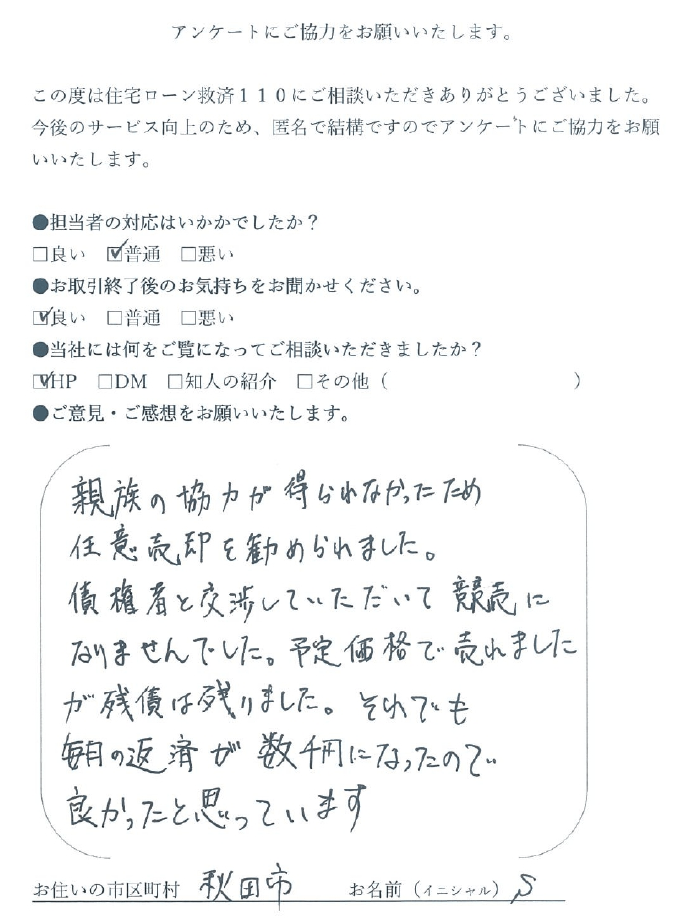 アンケートにご協力をお願いいたします。
この度は住宅ローン救済110にご相談いただきありがとうございました。
今後のサービス向上のため、匿名で結構ですのでアンケートにご協力をお願
いいたします。
●担当者の対応はいかかでしたか?
□良い ☑普通 □悪い
●お取引終了後のお気持ちをお聞かせください。
☑良い □普通 □悪い
●当社には何をご覧になってご相談いただきましたか?
☑HP □DM □知人の紹介 □その他( )
●ご意見・ご感想をお願いいたします。
親族の協力が得られなかったため
任意売却を勧められました。
債権者と交渉していただいて競売に
なりませんでした。予定価格で売れました
が残債は残りました。それでも
毎月の返済が数千円になったので
良かったと思っています
お住いの市区町村 秋田市 お名前(イニシャル) S